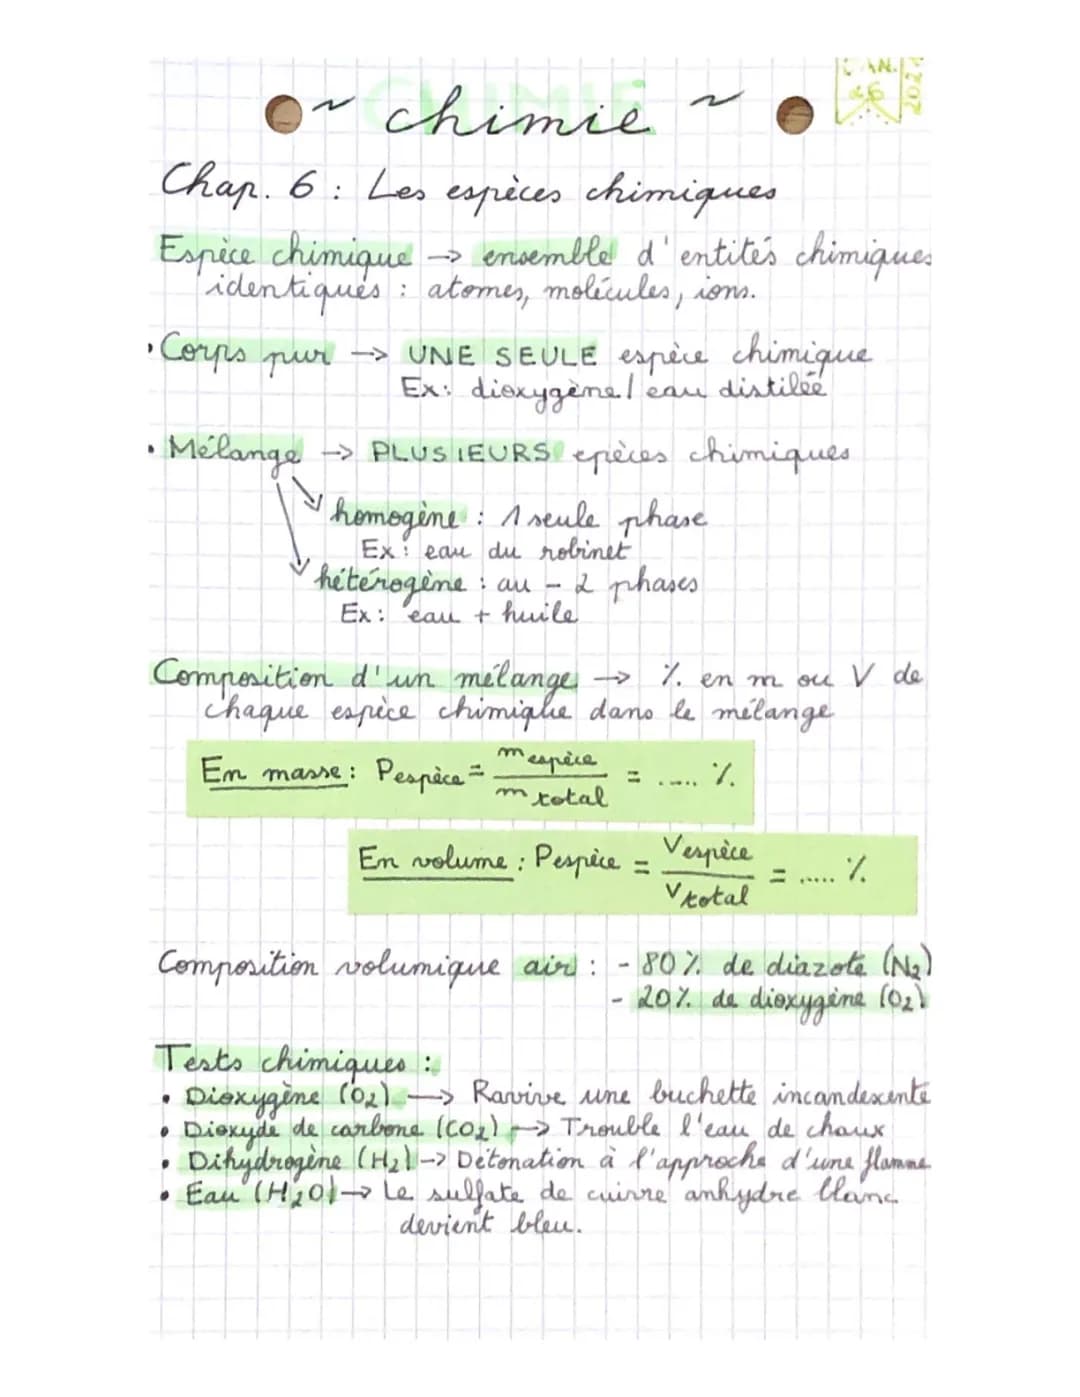 CHIMIE
~ chimie ~
JAN.
26
2021
Chap. 6 : Les espèces chimiques
Espèce chimique → ensemble d'entités chimiques
identiques : atomes, molécules, ions.
• Corps pur → UNE SEULE espèce chimique
Ex: dioxygène / eau distilée
• Mélange → PLUSIEURS epèces chimiques
homogène : 1 seule phase
Ex: eau du robinet
hétérogène : au - 2 phases
Ex: eau + huile
Composition d'un mélange → % en m ou V de
chaque espèce chimique dans le mélange
En masse : Pespèce = m espèce / m total = ..... %
En volume : Pespèce = Vespèce / Vtotal = ..... %
Composition volumique air : - 80% de diazote (N₂)
- 20% de dioxygène (O₂)
Tests chimiques :
• Dioxygène (O₂) → Ravive une buchette incandexente
• Dioxyde de carbone (CO₂) → Trouble l'eau de chaux
• Dihydrogène (H₂) → Détonation à l'approche d'une flamme
• Eau (H₂O) → Le sulfate de cuivre anhydre blanc
devient bleu.